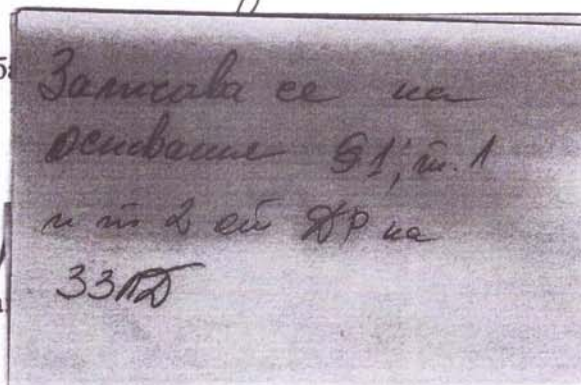 Заличава се на
основание §1, т. 1
и т 2 от ДР на
ЗЗЛД